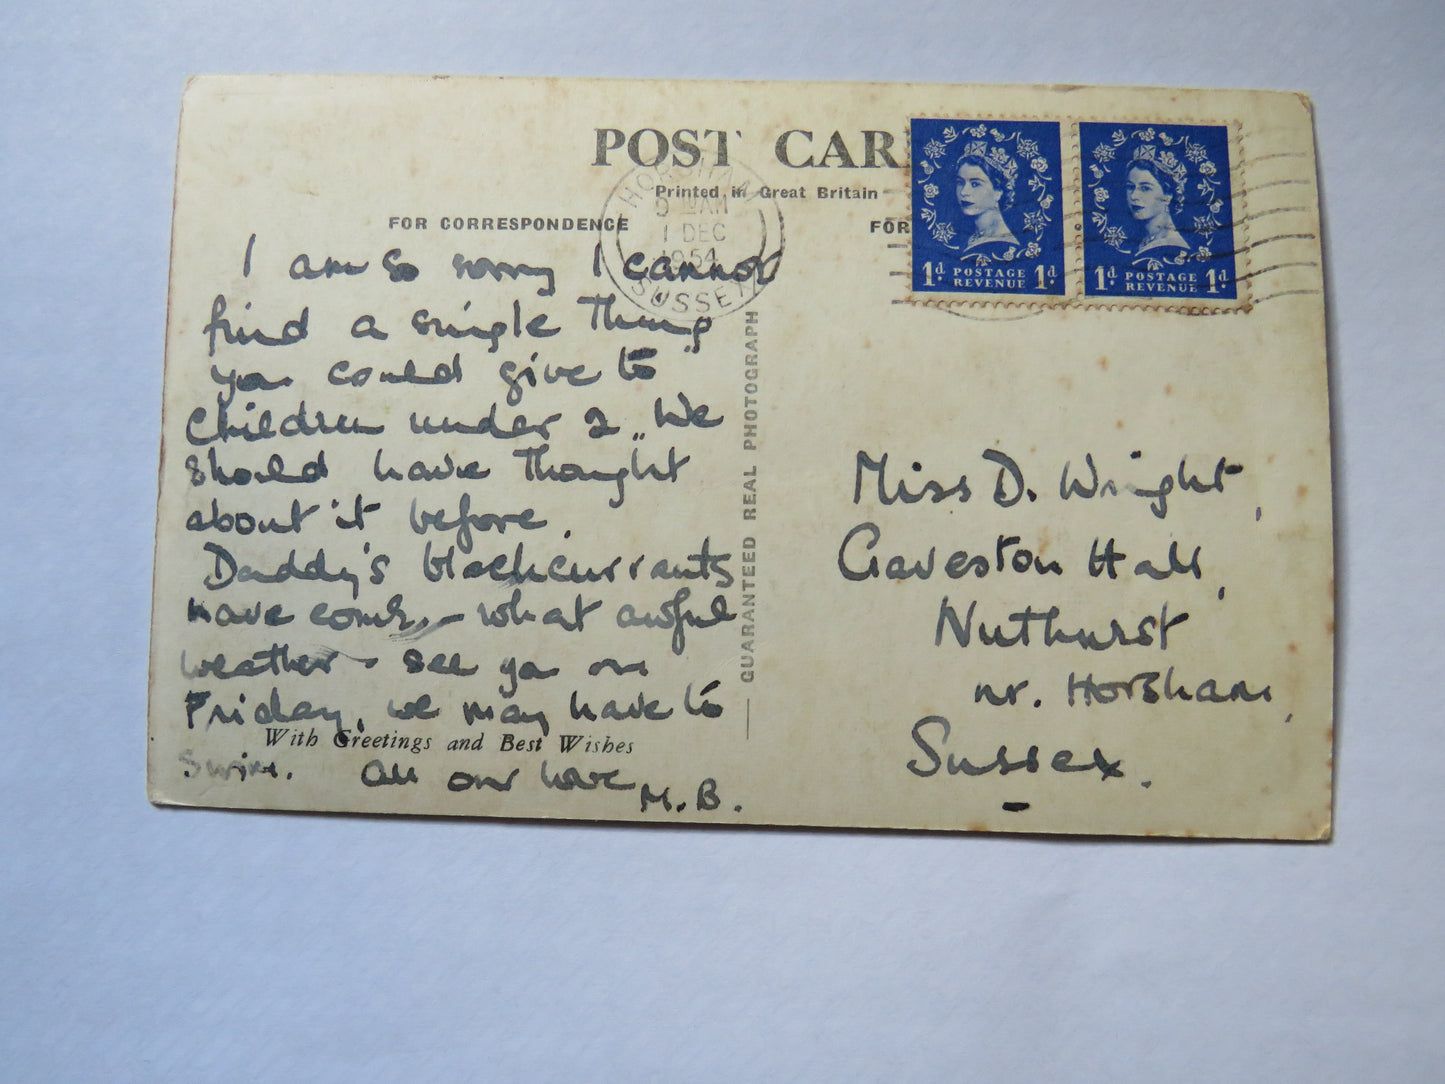 POST CAR
Printed in Great Britain
FOR CORRESPONDENCE
FOR
HORSHAM
9 AM
1 DEC
1954
SUSSEX
1d POSTAGE REVENUE 1d
1d POSTAGE REVENUE 1d
I am so sorry I cannot
find a single thing
you could give to
children under 2. We
should have thought
about it before.
Daddy's blackcurrants
have come. - what awful
weather - see you on
Friday, we may have to
With Greetings and Best Wishes
swim. All our love
M.B.
GUARANTEED REAL PHOTOGRAPH
Miss D. Wright,
Gaveston Hall,
Nuthurst
nr. Horsham,
Sussex.